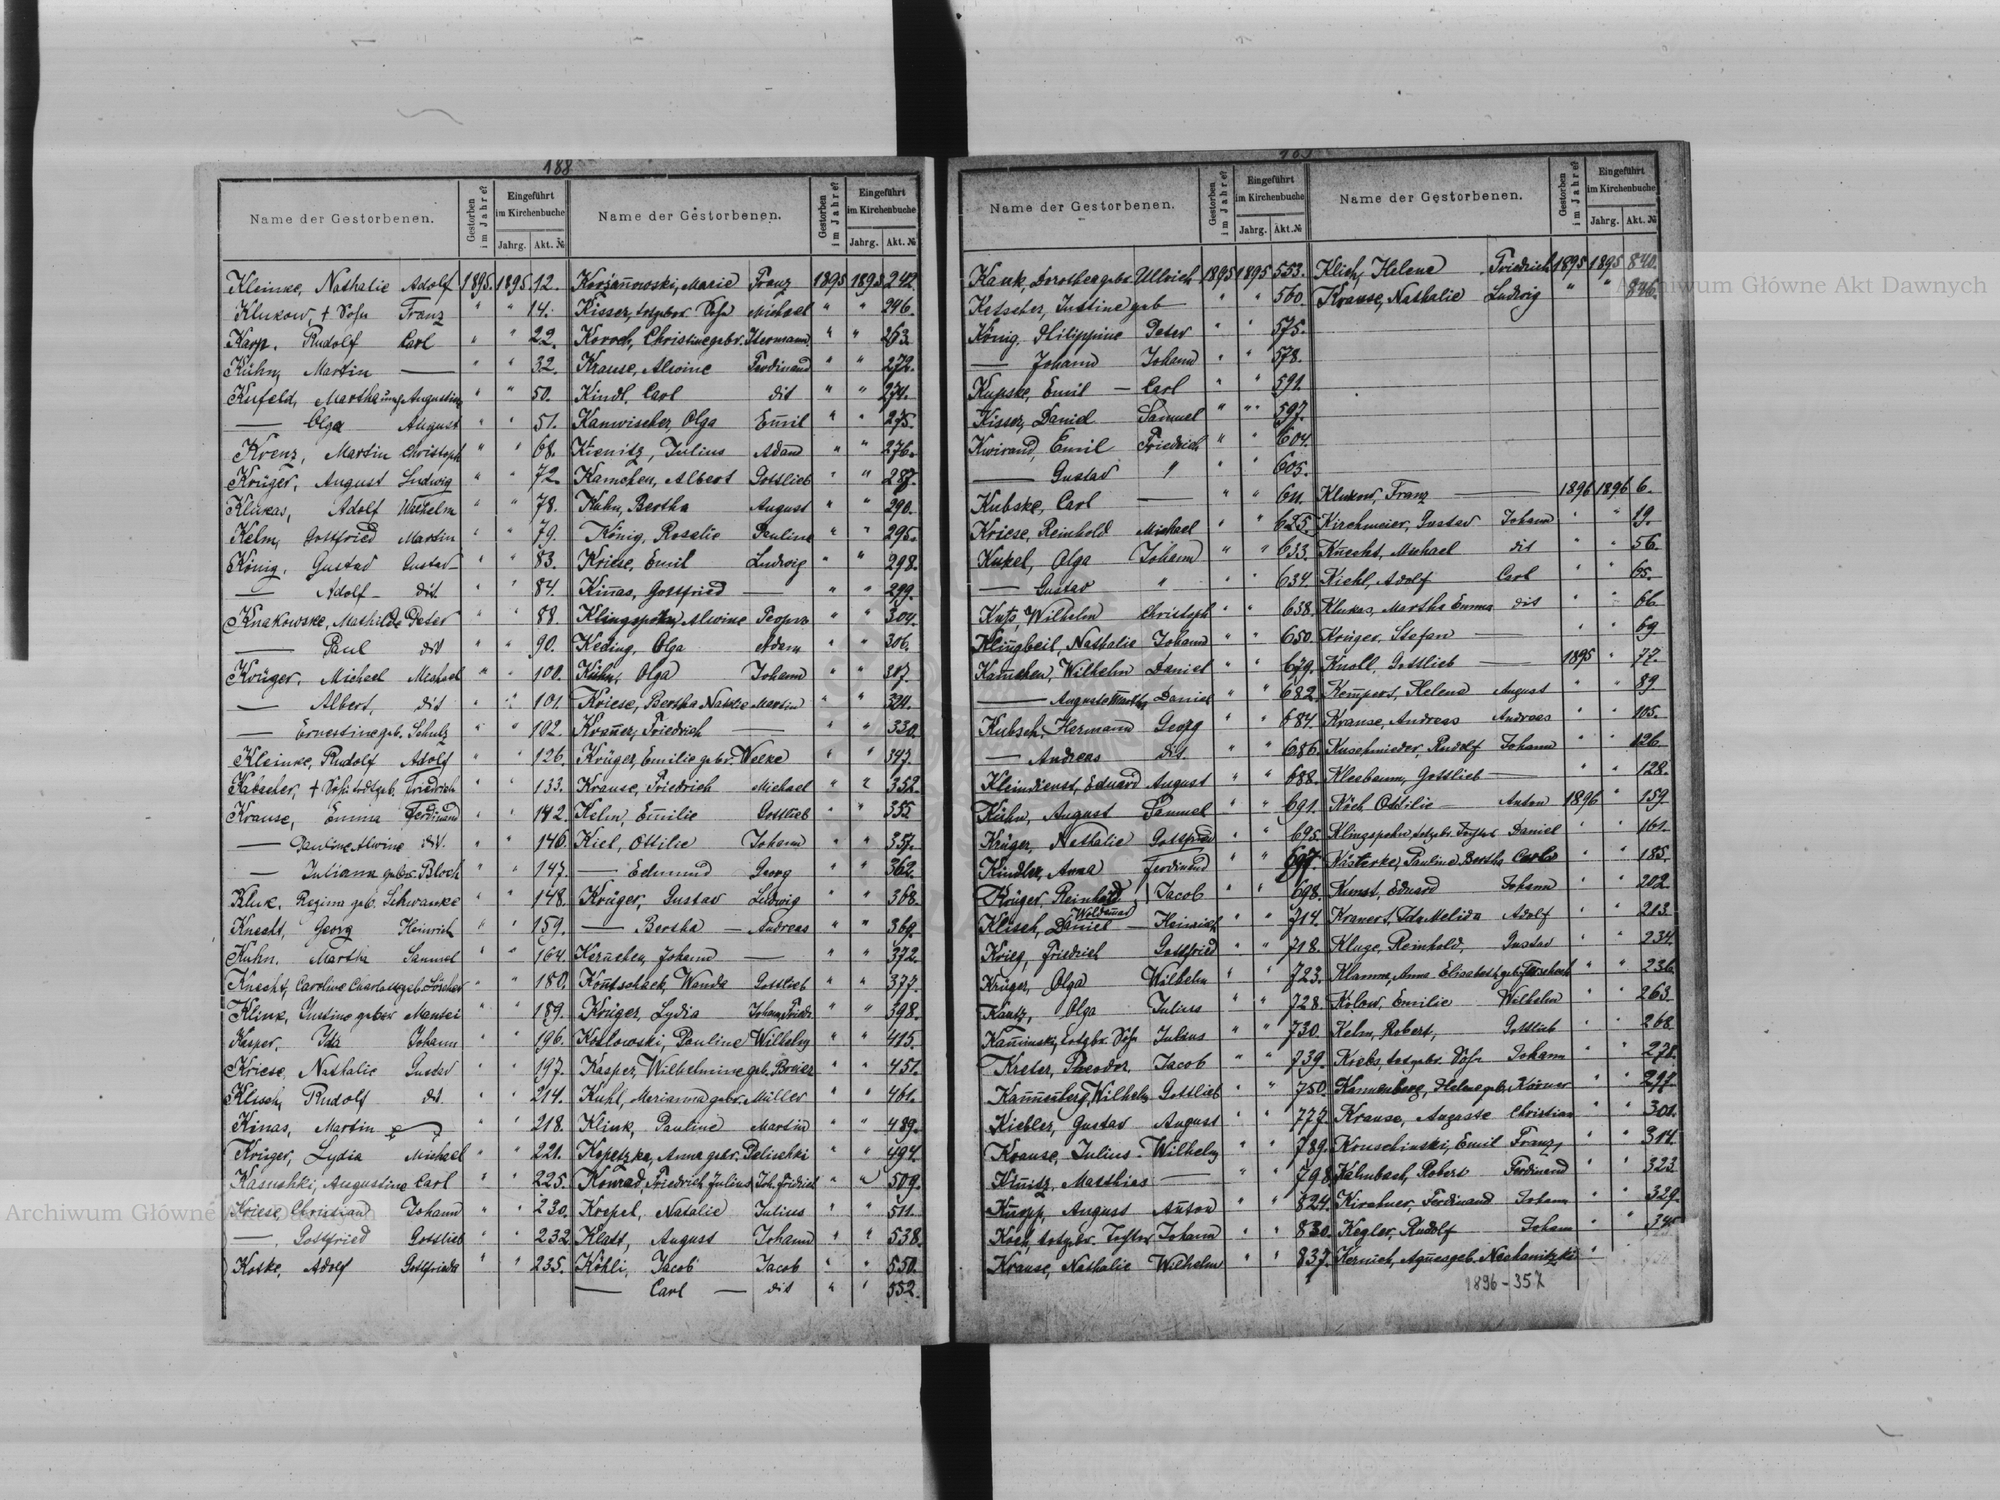 188
Name der Gestorbenen. Gestorben im Jahre? Eingeführt im Kirchenbuche Jahrg. Akt. №
Kleinke, Nathalie Adolf 1895 1895 12.
Klukow, + Sohn Franz " " 14.
Karp, Rudolf Carl " " 22.
Kühn, Martin — " " 32.
Kufeld, Martha August " " 50.
— Olga August " " 51.
Krenz, Martin Christoph " " 68.
Krüger, August Ludwig " " 72.
Klukas, Adolf Wilhelm " " 78.
Kelm, Gottfried Martin " " 79.
König, Gustav Gustav " " 83.
— Adolf — dit " " 84.
Knakowske, Mathilde Peter " " 88.
— Paul dit " " 90.
Krüger, Michael Michael " " 100.
— Albert, dit " " 101.
— Ernestine geb. Schulz " " 102.
Kleinke, Rudolf Adolf " " 126.
Kabscher, + Sohn todtgeb. Friedrich " " 133.
Krause, Emma Ferdinand " " 142.
— Pauline Alwine dit. " " 146.
— Juliana gebor. Bloch " " 147.
Kluk, Regina geb. Schwanke " " 148.
Knecht, Georg Heinrich " " 159.
Kuhn, Martha Samuel " " 164.
Knecht, Caroline Charlotte geb. Löscher " " 180.
Klink, Justine gebor. Mantei " " 189.
Kasper, Ida Johann " " 196.
Kriese, Nathalie Gustav " " 197.
Klisch, Rudolf dit " " 214.
Kinas, Martin " " 218.
Krüger, Lydia Michael " " 221.
Kasushki, Augustine Carl " " 225.
Kriese, Christian Johann " " 230.
— Gottfried Gottlieb " " 232
Koske, Adolf Gottfried " " 235.
Name der Gestorbenen. Gestorben im Jahre? Eingeführt im Kirchenbuche Jahrg. Akt. №
Korzannowski, Marie Franz 1895 1895 242.
Kisser, totgebor. Sohn Michael " " 246.
Koroch, Christine gebor. Hermann " " 263.
Krause, Alwine Ferdinand " " 272.
Kindl, Carl dit " " 274.
Kanwischer, Olga Emil " " 275.
Kienitz, Julius Adam " " 276.
Kamchen, Albert Gottlieb " " 287.
Kuhn, Bertha August " " 290.
König, Rosalie Pauline " " 295.
Kriese, Emil Ludwig " " 298.
Kinnas, Gottfried — " " 299.
Klingspohn, Alwine " " 304.
Keding, Olga Adam " " 306.
Kühn, Olga Johann " " 317.
Kriese, Bertha Natalie Martin " "
Kramer, Friedrich — " " 330.
Krüger, Emilie gebor. Welke " " 347.
Krause, Friedrich Michael " " 352.
Kelm, Emilie Gottlieb " " 355
Kiel, Ottilie Johann " " 357.
— Edmund Georg " " 362.
Krüger, Gustav Ludwig " " 368.
— Bertha — Andreas " " 369.
Kernchen, Johann — " " 372.
Kontschack, Wanda Gottlieb " " 377.
Krüger, Lydia Johann Friedr. " " 398.
Kotlowski, Pauline Wilhelm " " 415.
Kasper, Wilhelmine geb. Breier " " 451.
Kuhl, Merianna gebor. Müller " " 461.
Klink, Pauline Martin " " 489.
Kepetzka, Anna gebor. Pelischki " " 494.
Konrad, Friedrich Julius Joh. Fridrich " " 509.
Krepel, Natalie Julius " " 511.
Klatt, August Johann " " 538.
Köhli, Jacob Jacob " " 550.
— Carl — dit " " 552.
Name der Gestorbenen. Gestorben im Jahre? Eingeführt im Kirchenbuche Jahrg. Akt. №
Kauk, Dorothea gebor. Ullrich 1895 1895 553.
Ketscher, Justine geb — " " 560.
König, Philippine Peter " " 575.
— Johann Johann " " 578.
Kupske, Emil — Carl " " 591.
Kisser, Daniel Samuel " " 597.
Kwirand, Emil Friedrich " " 604.
— Gustav " " " 605.
Kubske, Carl — " " 611.
Kriese, Reinhold Michael " " 625.
Kukel, Olga Johann " " 633.
— Gustav " " " 634.
Kutz, Wilhelm Christoph " " 638.
Klingbeil, Nathalie Johann " " 650.
Kamchen, Wilhelm Daniel " " 679.
— Auguste Martha Daniel " " 682
Kubsch, Hermann Georg " " 684.
— Andreas dit. " " 686.
Kleindienst, Eduard August " " 688.
Kühn, August Samuel " " 691.
Krüger, Nathalie Gottfried " " 695.
Kindler, Anna Ferdinand " " 697.
Krüger, Reinhold Jacob " " 698.
Klisch, Daniel (Woldemar) — Heinrich " " 714.
Krieg, Friedrich Gottfried " " 718.
Krüger, Olga Wilhelm " " 723.
Kautz, Olga Julius " " 728.
Kaminski, totgbr. Sohn Julius " " 730.
Kreter, Theodor Jacob " " 739.
Kannenberg, Wilhelm Gottlieb " " 750.
Kiebler, Gustav August " " 777.
Krause, Julius Wilhelm " " 789.
Knitz, Matthias — " " 798
Knopp, August Anton " " 824.
Koch, totgebor. Tochter Johann " " 830.
Krause, Nathalie Wilhelm " " 837.
Name der Gestorbenen. Gestorben im Jahre? Eingeführt im Kirchenbuche Jahrg. Akt. №
Klich, Helene Friedrich 1895 1895 840.
Krause, Nathalie Ludwig " " 846.
Klukow, Franz — 1896 1896 6.
Kirchmeier, Gustav Johann " " 19.
Knecht, Michael dit " " 56.
Kiehl, Adolf Carl " " 65.
Klukas, Martha Emma dit " " 66.
Krüger, Stefan — " " 69
Knoll, Gottlieb — 1895 " 77.
Kempert, Helene August " " 89
Krause, Andreas Andreas " " 105.
Kuschmieder, Rudolf Johann " " 126.
Klezbaum, Gottlieb — " " 128.
Koch, Ottilie — Anton 1896 " 159
Klingspohn, totgebr. Tochter Daniel " " 161.
Kästerke, Pauline Bertha Carl " " 185.
Kunst, Eduard Johann " " 202
Kranert, Ida Melida Adolf " " 213.
Kluge, Reinhold, Gustav " " 234.
Klamm, Anna Elisabeth geb. " " 236.
Kolow, Emilie Wilhelm " " 263.
Kelm, Robert, Gottlieb " " 268.
Krebs, totgebr. Sohn Johann " " 278.
Kannenberg, Helene geb. Körner " " 297.
Krause, Auguste Christian " " 301.
Kruschinski, Emil Franz " " 314.
Kalmbach, Robert Ferdinand " " 323.
Kirchner, Ferdinand Johann " " 329.
Kegler, Rudolf Johann " "
Kernich, Agnes geb. Nechanitzki "
1896 - 357
Archiwum Główne Akt Dawnych
Archiwum Główne Akt Dawnych